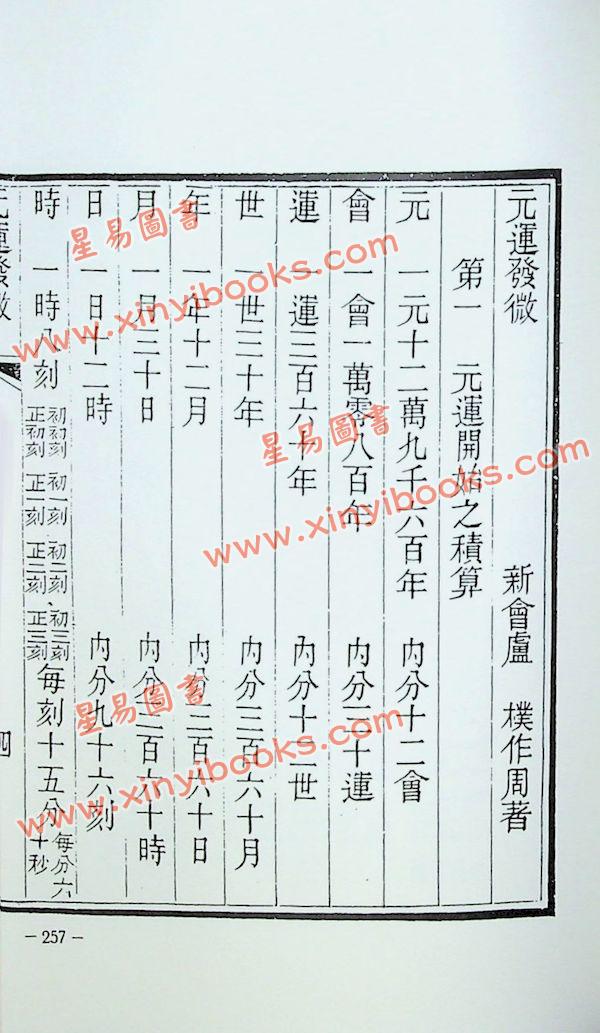 元運發微
新會盧 樸作周著
第一 元運開始之積算
元 一元十二萬九千六百年 內分十二會
會 一會一萬零八百年 內分三十運
運 一運三百六十年 內分十二世
世 一世三十年 內分三百六十月
年 一年十二月 內分三百六十日
月 一月三十日 內分三百六十時
日 一日十二時 內分九十六刻
時 一時八刻 初初刻 初一刻 初二刻 初三刻 正初刻 正一刻 正二刻 正三刻 每刻十五分 每分六十秒
元運發微
四
－257－
星易圖書
www.xinyibooks.com
星易圖書
www.xinyibooks.com
星易圖書
www.xinyibooks.com